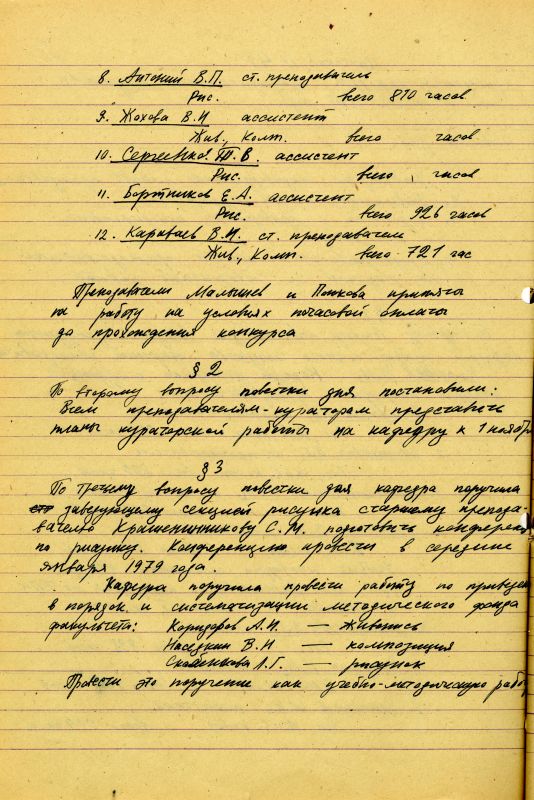 8. Антоний В.П. ст. преподаватель
Рис. всего 810 часов
9. Жохова В.И ассистент
Жив., Комп. всего часов
10. Сергеенко Т.В. ассистент
Рис. всего часов
11. Бортников Е.А. ассистент
Рис. всего 926 часов
12. Караваев В.И. ст. преподаватель
Жив., Комп. всего 721 час
Преподаватели Малышев и Попкова приняты
на работу на условиях почасовой оплаты
до прохождения конкурса
§ 2
По второму вопросу повестки дня постановили:
Всем преподавателям-кураторам представить
планы кураторской работы на кафедру к 1 ноября
§ 3
По третьему вопросу повестки дня кафедра поручила
заведующему секцией рисунка старшему препода-
вателю Крашенинникову С.М. подготовить конферен
по рисунку. Конференцию провести в середине
января 1979 года.
Кафедра поручила провести работу по приведен
в порядок и систематизации методического фонда
факультета: Коридоров А.И. — живопись
Наседкин В.И — композиция
Скабенкова Л.Г. — рисунок
Провести это поручение как учебно-методическую рабо